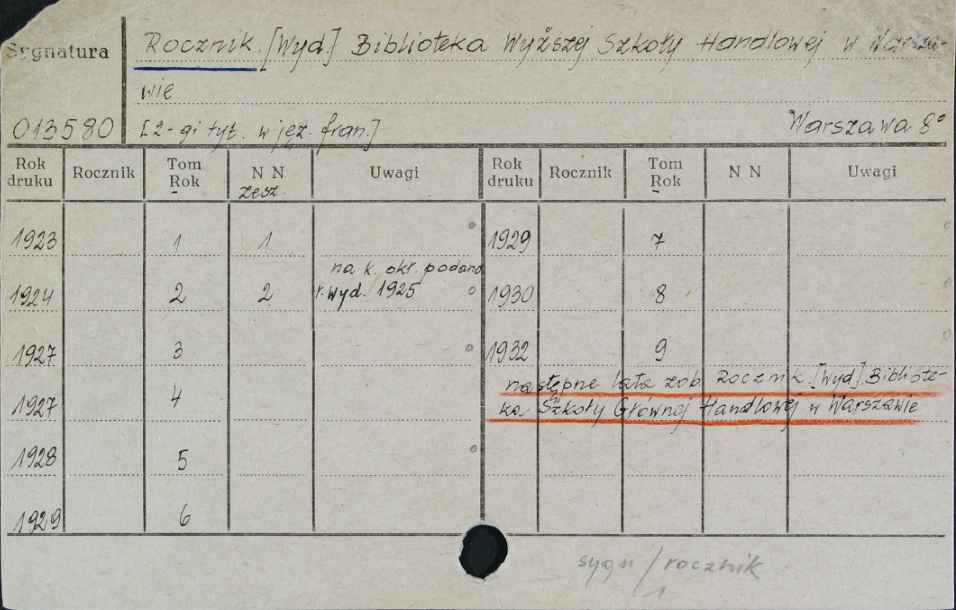 Sygnatura
Rocznik. [Wyd.] Biblioteka Wyższej Szkoły Handlowej w Warsza-
wie
013580 [2-gi tyt. w jęz. fran.] Warszawa 8°
Rok druku Rocznik Tom Rok N N zesz. Uwagi Rok druku Rocznik Tom Rok N N Uwagi
1923 1 1 1929 7
na k. okł. podano
1924 2 2 r. wyd. 1925 1930 8
1927 3 1932 9
następne lata zob. Rocznik. [Wyd.] Bibliote-
1927 4 ka Szkoły Głównej Handlowej w Warszawie
1928 5
1929 6
sygn / rocznik
1